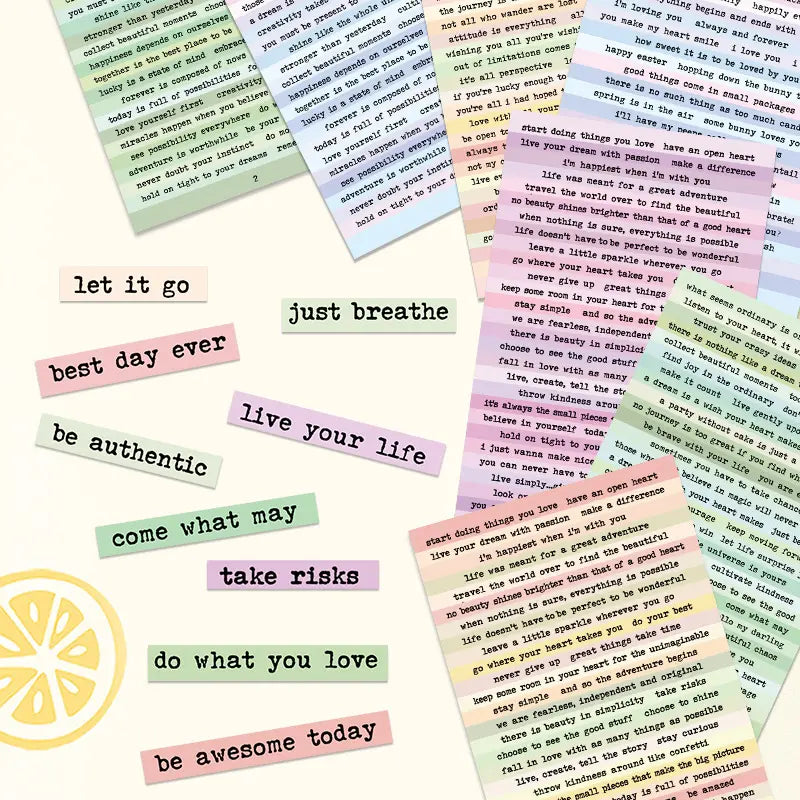 you must
shine like
stronger than yesterday
collect beautiful moments choos
happiness depends on ourselves
together is the best place to be
lucky is a state of mind embrac
forever is composed of nows
today is full of possibilities fo
love yourself first creativity
miracles happen when you believe
see possibility everywhere do w
adventure is worthwhile be your
never doubt your instinct do mo
hold on tight to your dreams remem
2
a dream is
creativity takes
you must be present to
shine like the whole univers
stronger than yesterday cultiv
collect beautiful moments choose
happiness depends on ourselves
together is the best place to be
lucky is a state of mind embrac
forever is composed of nows
today is full of possibilities
love yourself first creat
miracles happen when you
see possibility everywhere
adventure is worthwhile
never doubt your instinct
hold on tight to your d
the journey is
not all who wander are lost
attitude is everything all
wishing you all you're wishi
out of limitations comes
it's all perspective
if you're lucky enough t
you're all i had hoped
love with all your
be open to
always t
not my c
live ev
everything begins and ends with
i'm loving you always and forever
you make my heart smile i love you i
how sweet it is to be loved by you
happy easter hopping down the bunny t
good things come in small packages
there is no such thing as too much cand
spring is in the air some bunny loves yo
i'll have my peeps
start doing things you love have an open heart
live your dream with passion make a difference
i'm happiest when i'm with you
life was meant for a great adventure
travel the world over to find the beautiful
no beauty shines brighter than that of a good heart
when nothing is sure, everything is possible
life doesn't have to be perfect to be wonderful
leave a little sparkle wherever you go
go where your heart takes you do
never give up great things
keep some room in your heart for t
stay simple and so the adve
we are fearless, independent
there is beauty in simplicity
choose to see the good stuff
fall in love with as many
live, create, tell the sto
throw kindness aroun
it's always the small pieces
believe in yourself toda
hold on tight to you
i just wanna make nice
you can never have to
live simply...
look on
what seems ordinary is
listen to your heart, it w
trust your crazy ideas
there is nothing like a dream t
collect beautiful moments too
find joy in the ordinary don't
make it count live gently upo
a dream is a wish your heart makes
a party without cake is just a
no journey is too great if you find wh
be brave with your life you are
sometimes you have to take chanc
those who believe in magic will never
a dream your heart makes just be
courage keep moving forw
win let life surprise
the universe is yours
cultivate kindness
choose to see the good
come what may
hello my darling
beautiful chaos
love you
let it go
just breathe
best day ever
live your life
be authentic
come what may
take risks
do what you love
be awesome today
start doing things you love have an open heart
live your dream with passion make a difference
i'm happiest when i'm with you
life was meant for a great adventure
travel the world over to find the beautiful
no beauty shines brighter than that of a good heart
when nothing is sure, everything is possible
life doesn't have to be perfect to be wonderful
leave a little sparkle wherever you go
go where your heart takes you do your best
never give up great things take time
keep some room in your heart for the unimaginable
stay simple and so the adventure begins
we are fearless, independent and original
there is beauty in simplicity take risks
choose to see the good stuff choose to shine
fall in love with as many things as possible
live, create, tell the story stay curious
throw kindness around like confetti
the small pieces that make the big picture
today is full of possiblities
be amazed
happen